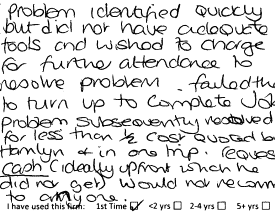 Problem identified quickly
but did not have adequate
tools and wished to charge
for further attendance to
resolve problem. failed the
to turn up to complete Job
Problem subsequently resolved
for less than ½ cost quoted by
Hamlyn & in one trip. reques
cash (ideally upfront which he
did not get) would not recomm
to anyone.
I have used this firm: 1st Time ☑ <2 yrs ☐ 2-4 yrs ☐ 5+ yrs ☐